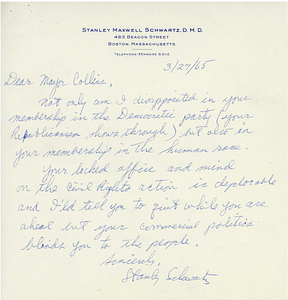 STANLEY MAXWELL SCHWARTZ, D. M. D.
483 BEACON STREET
BOSTON, MASSACHUSETTS
TELEPHONE KENMORE 6-0112
3/27/65
Dear Mayor Collins,
Not only am I disappointed in your
membership in the Democratic party (your
Republicanism shows through) but also in
your membership in the human race.
Your locked office and mind
on the Civil Rights action is deplorable
and I'ld tell you to quit while you are
ahead but your commercial politics
blinds you to the people.
Sincerely,
Stanley Schwartz